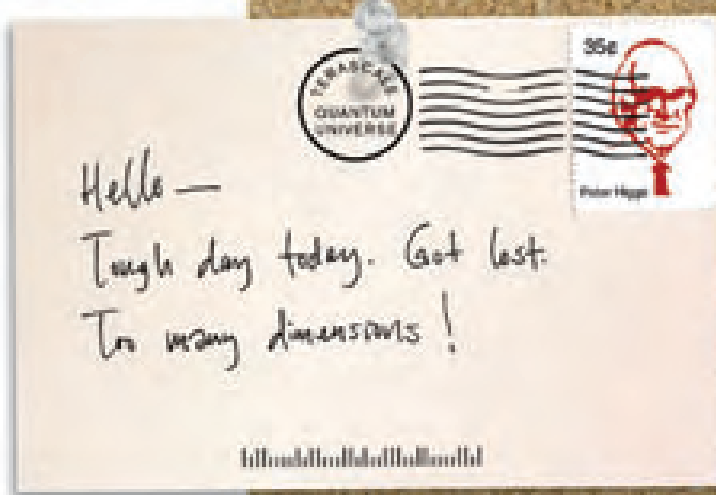 TERASCALE
QUANTUM
UNIVERSE
35¢
Peter Higgs
Hello —
Tough day today. Got lost.
Too many dimensions!